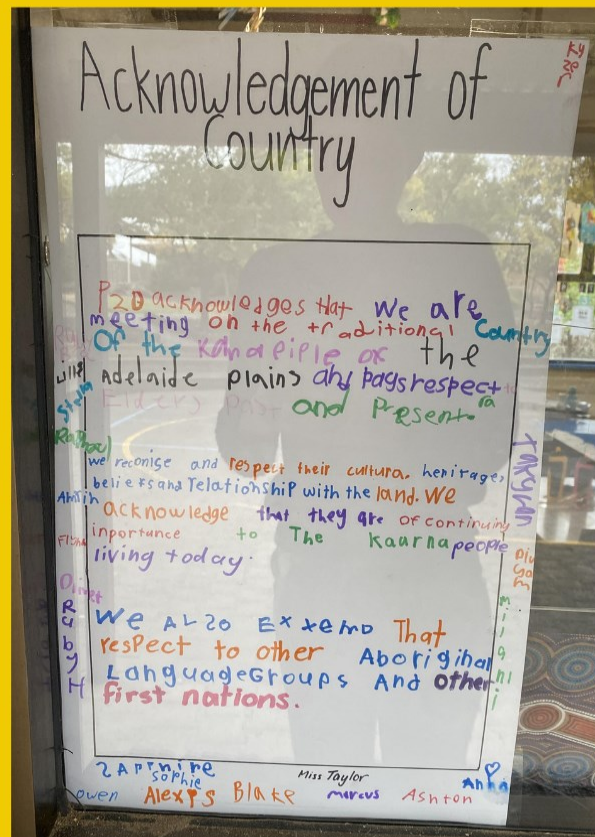 Acknowledgement of
Country
P20 acknowledges that we are
meeting on the traditional Country
Of the of the
Adelaide plains and pays respect to
Elders past and Present.
we reconise and respect their cultura, herirage,
beliefs and relationship with the land. We
acknowledge that they are of continuing
inportance to The Kaurna people
living today.
We ALSO Extend That
respect to other Aboriginal
LanguageGroups And other
first nations.
will
Stella
Raphael
Ruby H
Sophie
Miss Taylor
Anna
owen Alexis Blake marcus Ashton